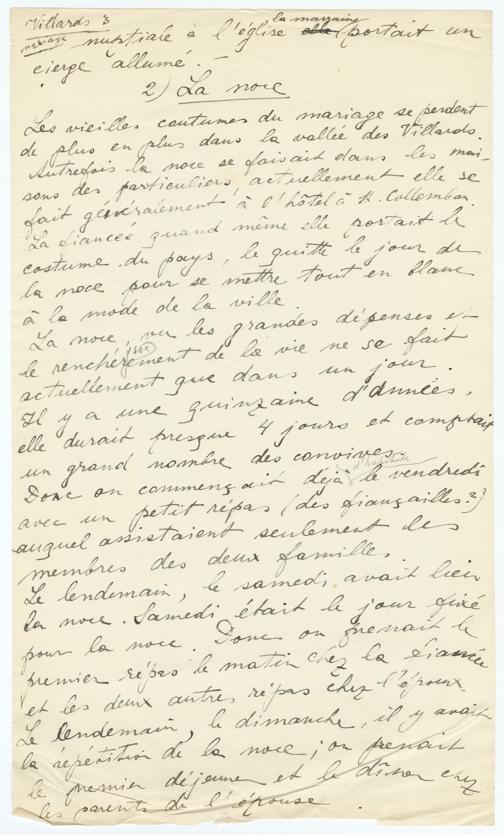 Villards 3
mariage
nuptiale à l'église la marraine elle portait un
cierge allumé. —
2) La noce
Les vieilles coutumes du mariage se perdent
de plus en plus dans la vallée des Villards.
Autrefois la noce se faisait dans les mai-
sons des particuliers, actuellement elle se
fait généralement à l'hôtel à St. Collomban.
La fiancée quand même elle portait le
costume du pays, le quitte le jour de
la noce pour se mettre tout en blanc
à la mode de la ville.
La noce, vu les grandes dépenses et
le renchérement de la vie ne se fait
actuellement que dans un jour.
Il y a une quinzaine d'années,
elle durait presque 4 jours et comptait
un grand nombre des convives.
Donc on commençait déjà d'habitude le vendredi
avec un petit répas (des fiançailles?)
auquel assistaient seulement les
membres des deux familles.
Le lendemain, le samedi, avait lieu
la noce. Samedi était le jour fixé
pour la noce. Donc on prenait le
premier répas le matin chez la fiancée
et les deux autres répas chez l'époux
Le lendemain, le dimanche, il y avait
la répétition de la noce; on prenait
le premier déjeuner et le dîner chez
les parents de l'épouse.